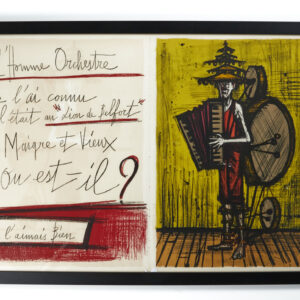 L'Homme Orchestre
Je l'ai connu
il était au "Lion de Belfort"
Maigre et Vieux
ou est-il ?
Je l'aimais Bien